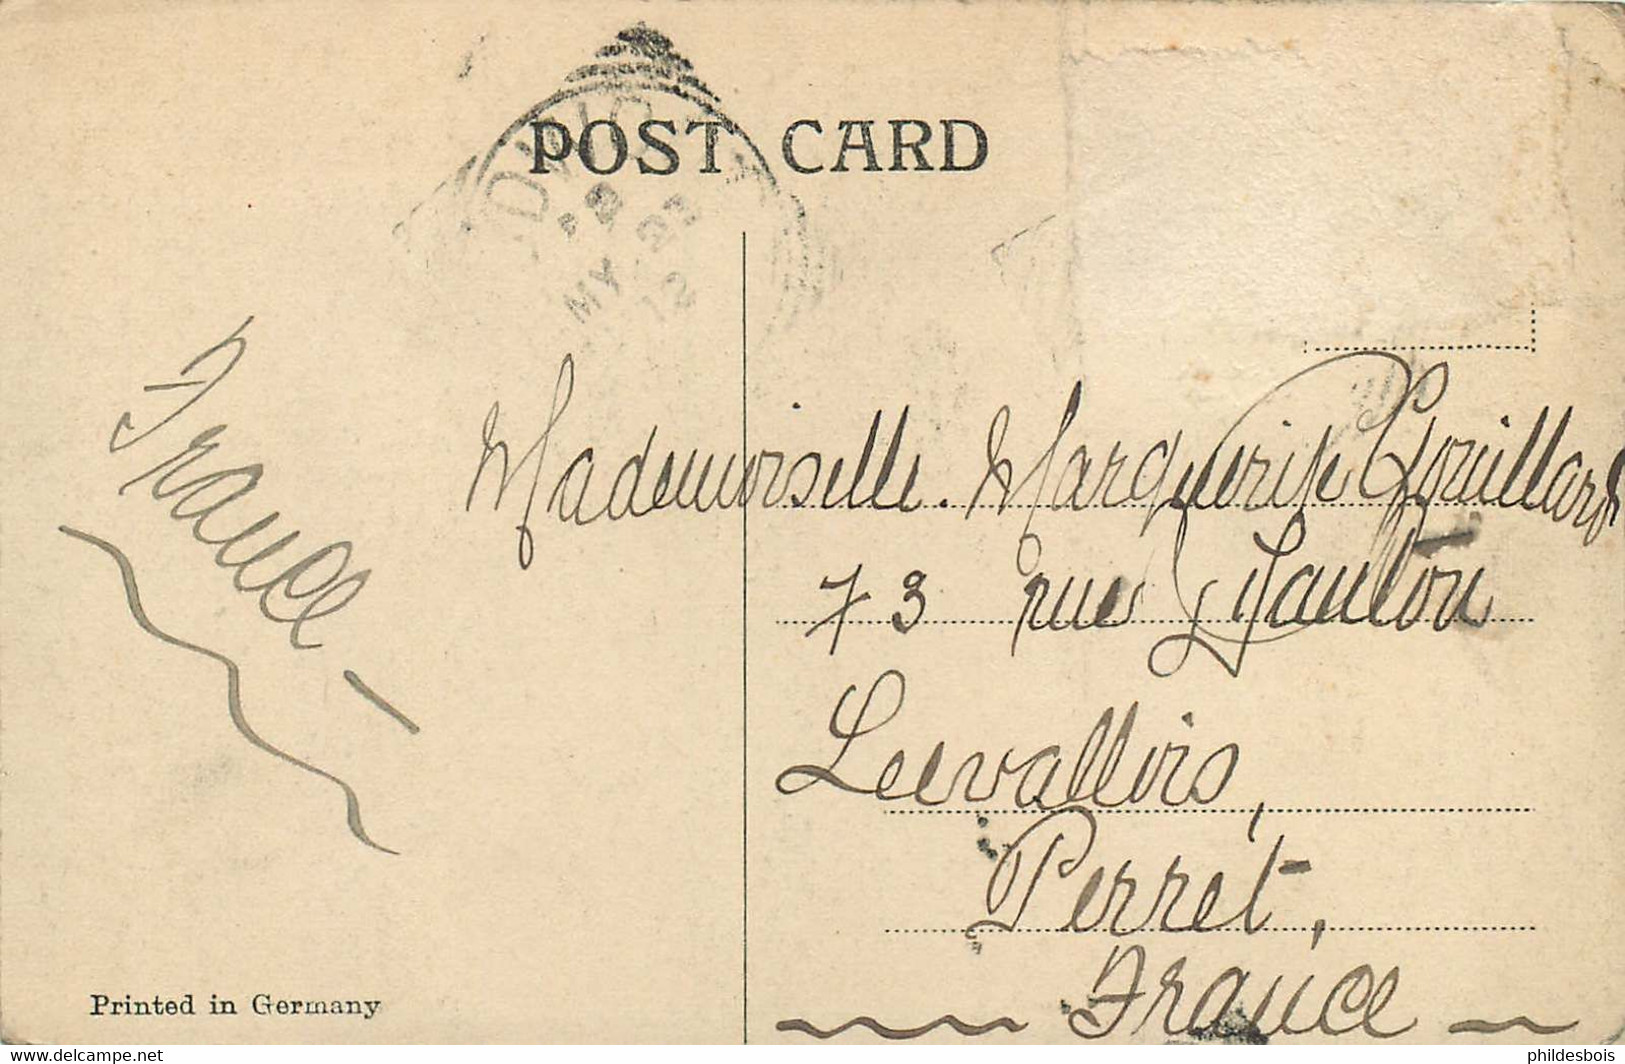 POST CARD
MY 23
12
France -
Mademoiselle. Marguerite Gouillard
73 rue
Leevallois,
Perret,
France
Printed in Germany
delcampe.net
phildesbois